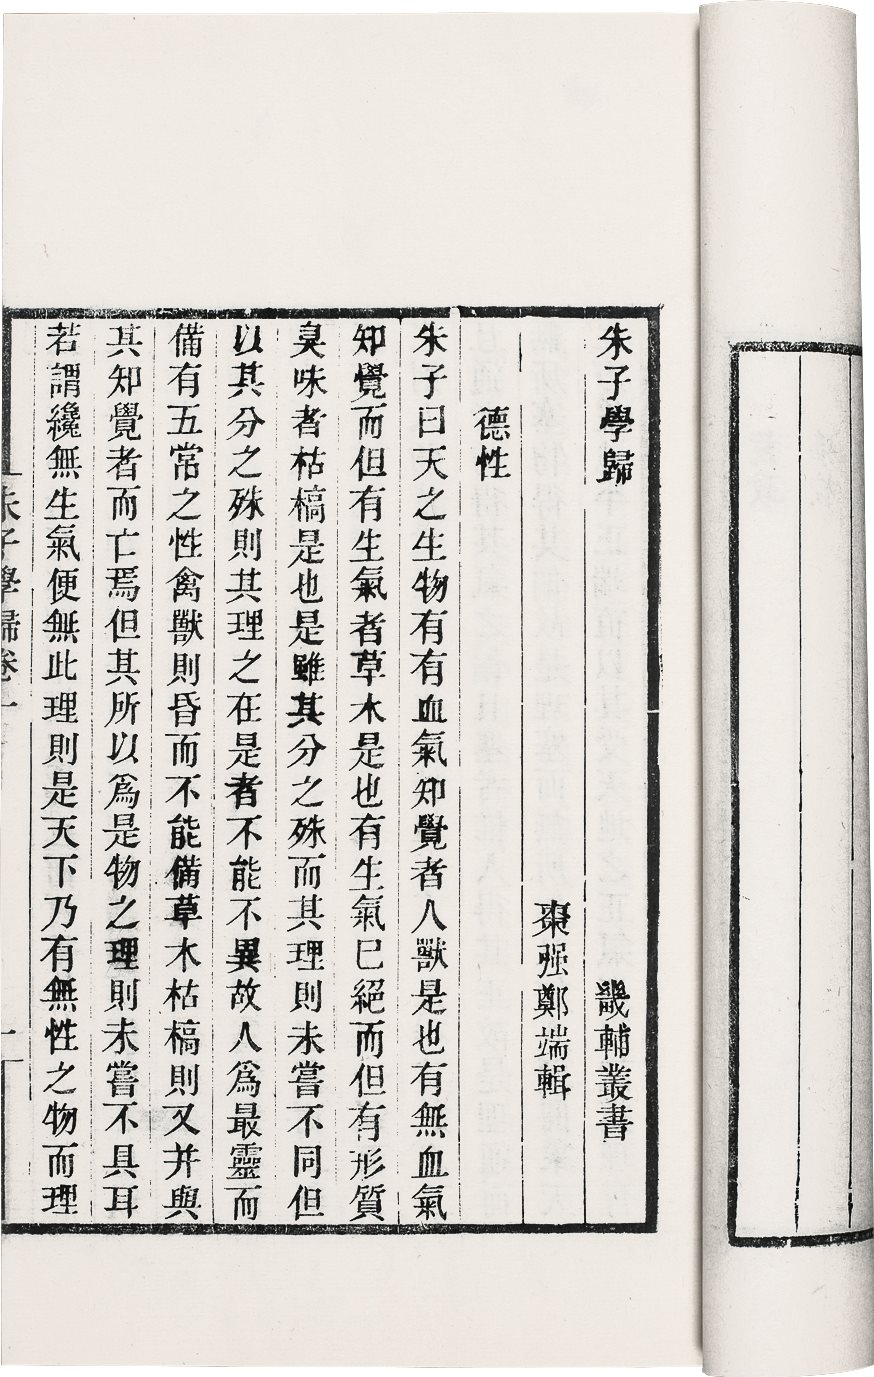 朱子學歸　畿輔叢書
棗强鄭端輯
德性
朱子曰天之生物有有血氣知覺者人獸是也有無血氣
知覺而但有生氣者草木是也有生氣已絕而但有形質
臭味者枯槁是也是雖其分之殊而其理則未嘗不同但
以其分之殊則其理之在是者不能不異故人爲最靈而
備有五常之性禽獸則昏而不能備草木枯槁則又并與
其知覺者而亡焉但其所以爲是物之理則未嘗不具耳
若謂纔無生氣便無此理則是天下乃有無性之物而理
朱子學歸卷一